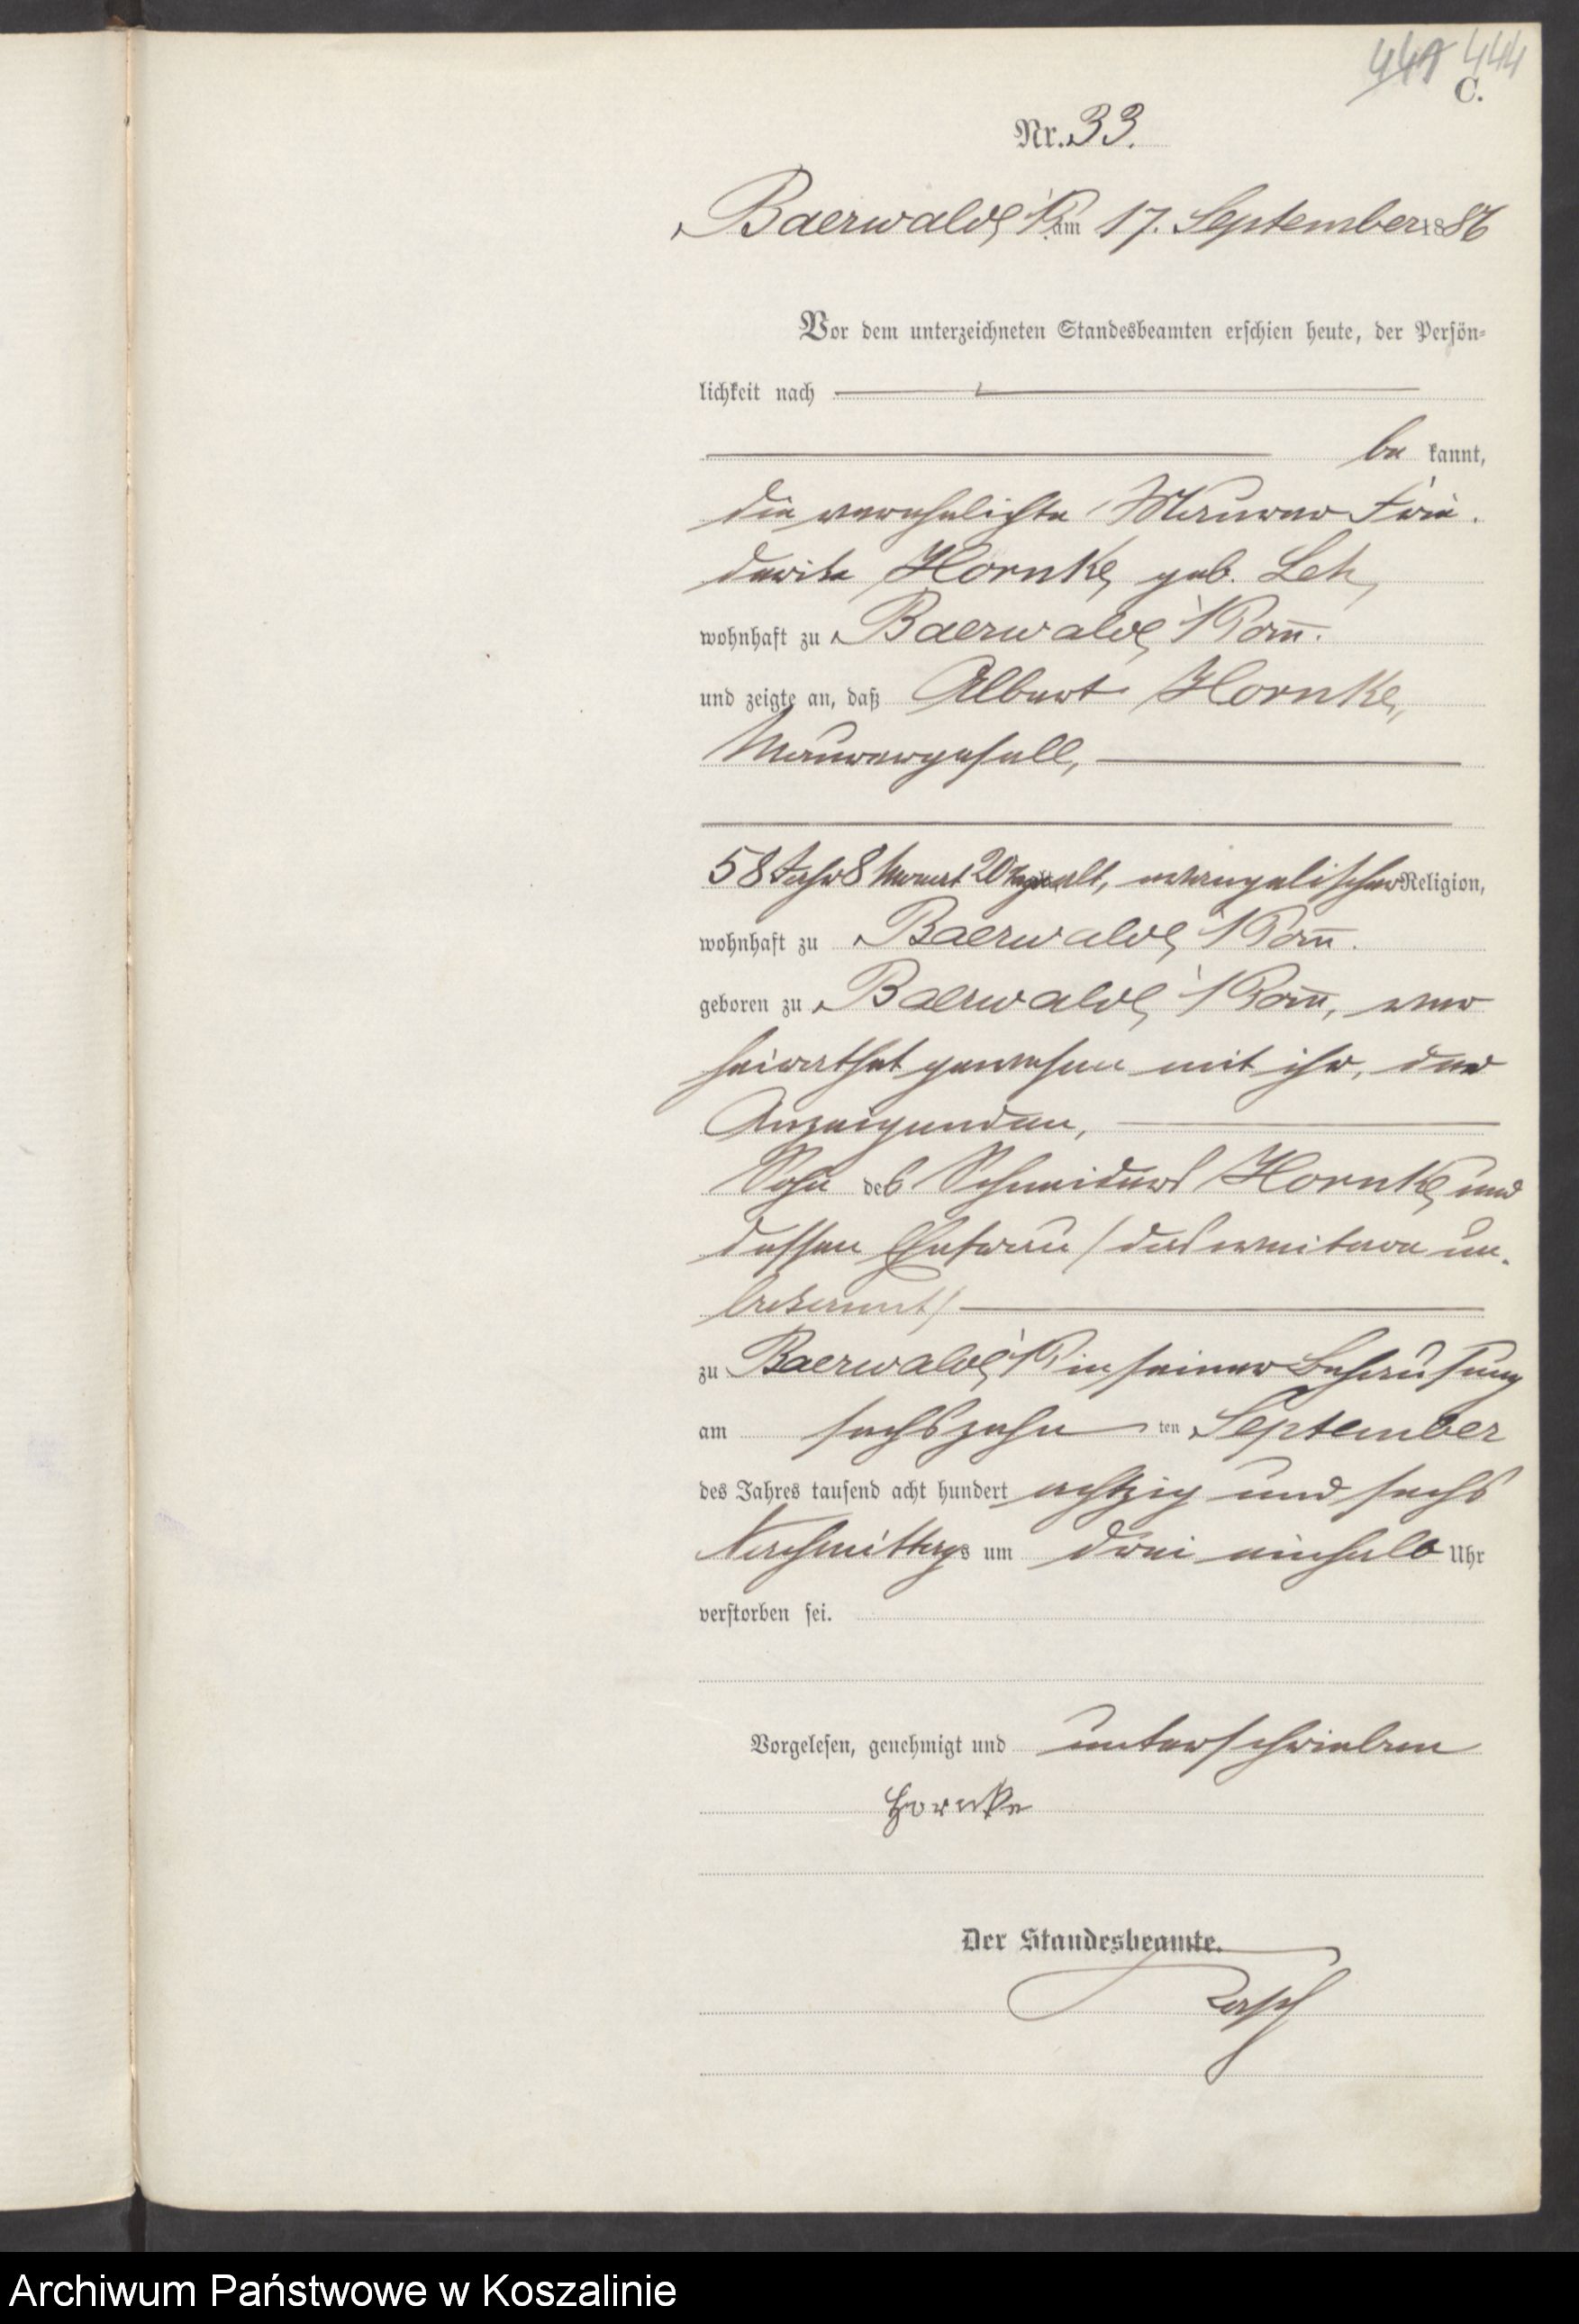 444
C.
Nr. 33.
Baerwalde P. am 17. September 1886
Vor dem unterzeichneten Standesbeamten erschien heute, der Persön-
lichkeit nach
be kannt,
die verehelichte Maurer Frie-
derike Hornke, geb. Leh,
wohnhaft zu Baerwalde Pom̄.
und zeigte an, daß Albert Hornke,
Maurergesell,
58 Jahr 8 Monat 20 Tage alt, evangelischer Religion,
wohnhaft zu Baerwalde Pom̄.
geboren zu Baerwalde Pom̄, ver
heirathet gewesen mit ihr, der
Anzeigenden,
Sohn des Schneiders Hornke und
dessen Ehefrau (das weitere un-
bekannt)
zu Baerwalde P in seiner Behausung
am sechszehn ten September
des Jahres tausend acht hundert achtzig und sechs
Nachmittags um drei einhalb Uhr
verstorben sei.
Vorgelesen, genehmigt und unterschrieben
Hornke
Der Standesbeamte.
Archiwum Państwowe w Koszalinie